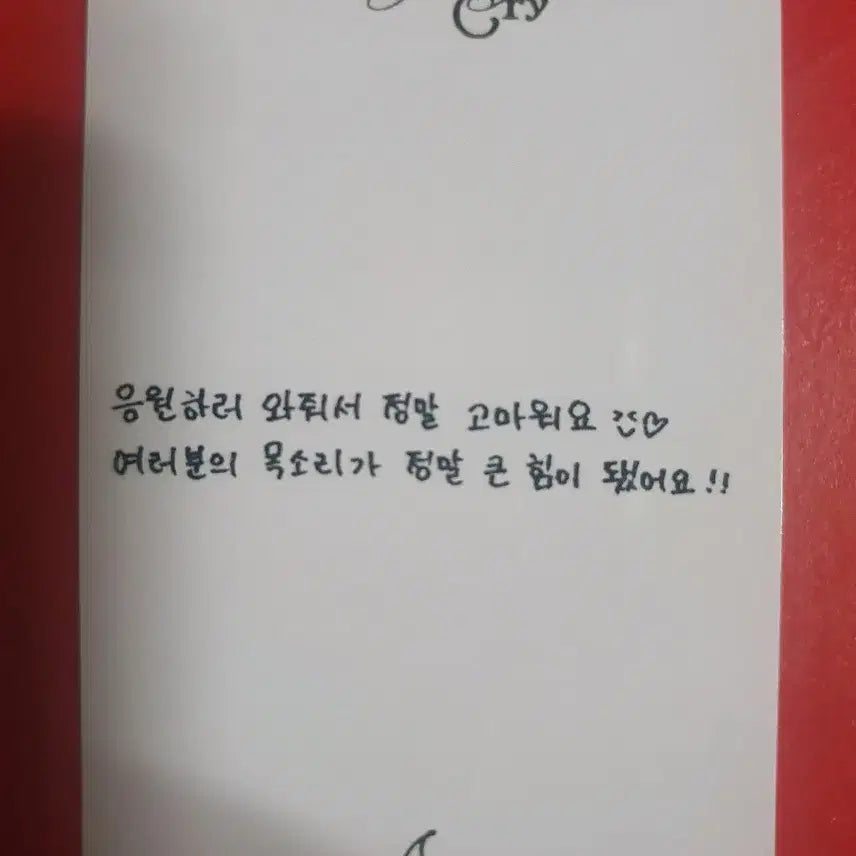 Cry
응원하러 와줘서 정말 고마워요 ♡
여러분의 목소리가 정말 큰 힘이 됐어요!!